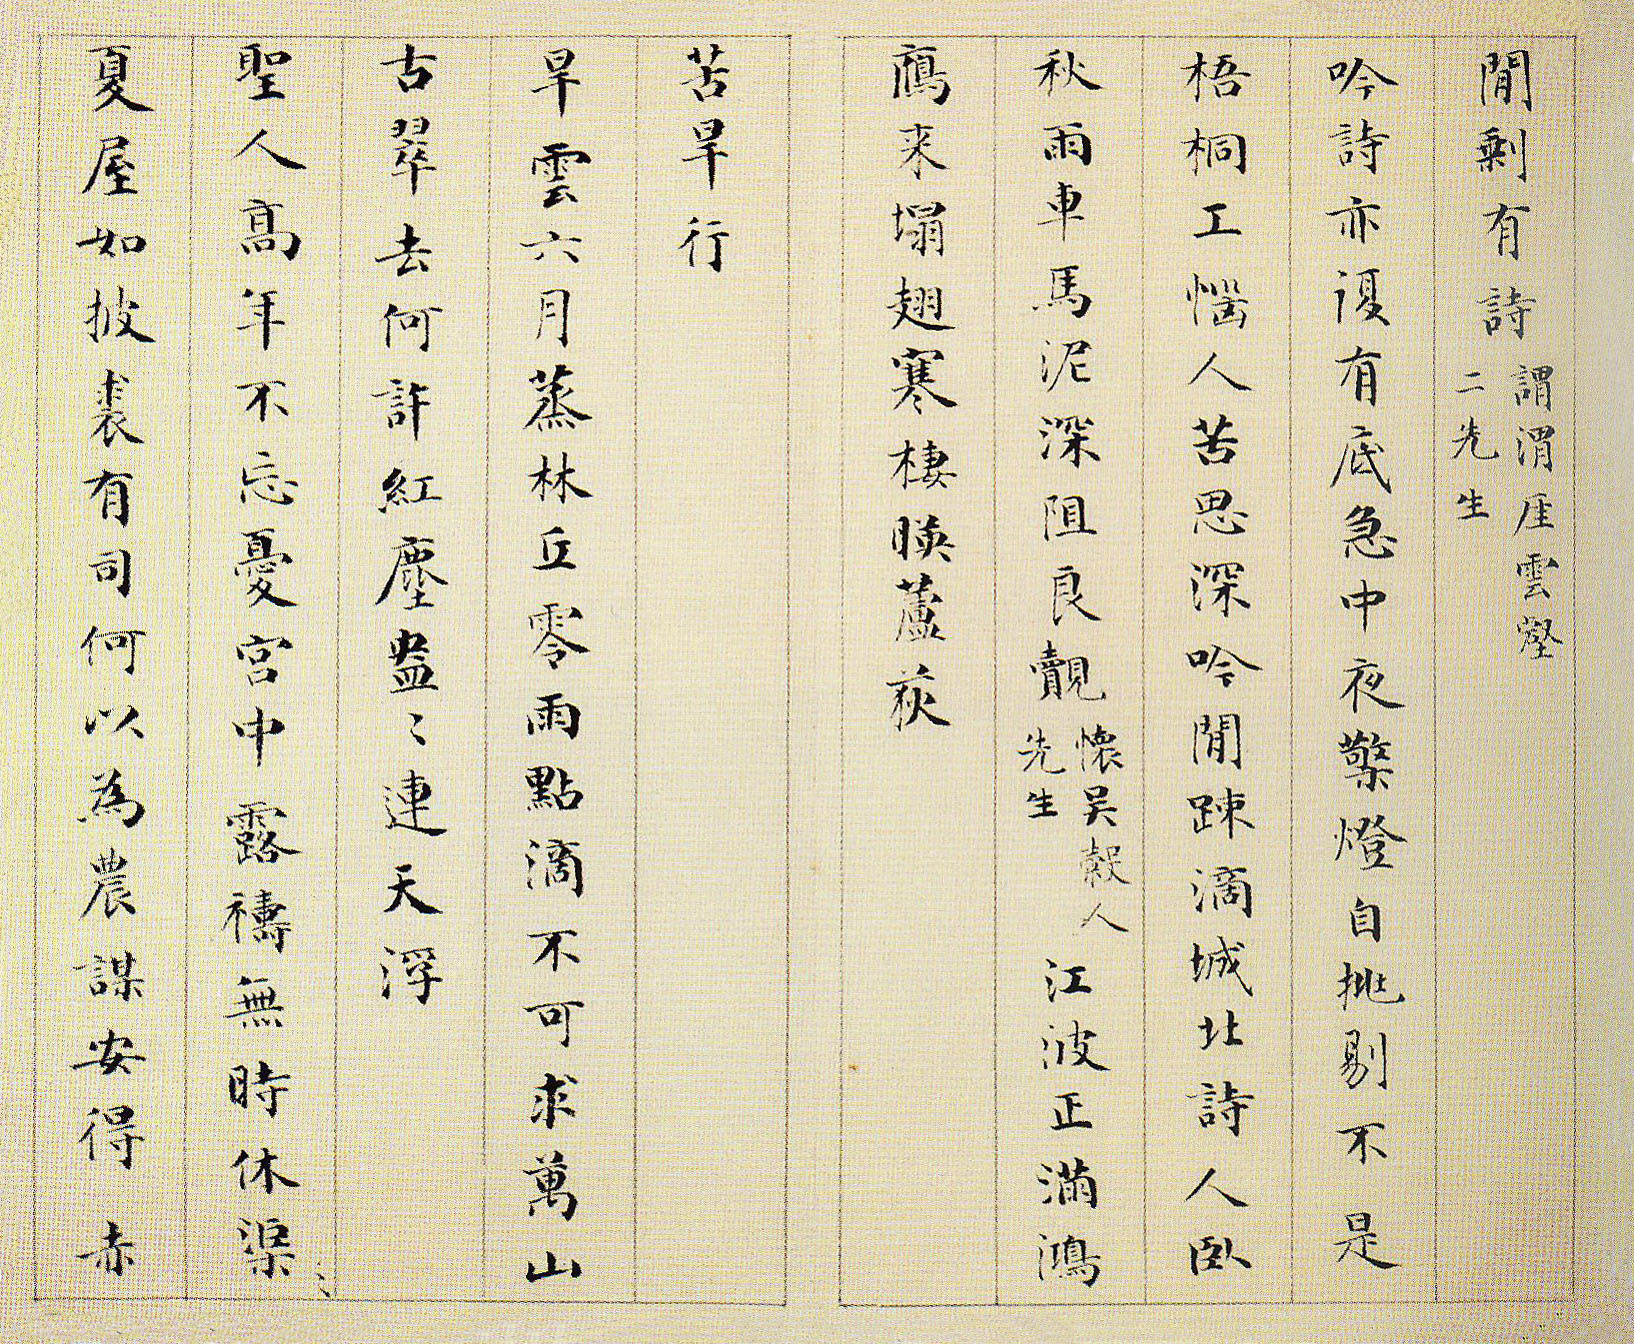 閒剩有詩謂渭厓雲壑二先生
吟詩亦複有底急中夜擎燈自挑剔不是
梧桐工惱人苦思深吟閒踈滴城北詩人臥
秋雨車馬泥深阻良覿懷吴穀人先生江波正滿鴻
鴈来塌翅寒棲暎蘆荻
苦旱行
旱雲六月蒸林丘零雨點滴不可求萬山
古翠去何許紅塵盎〻連天浮
聖人高年不忘憂宮中露禱無時休渠〻
夏屋如披裘有司何以為農謀安得赤